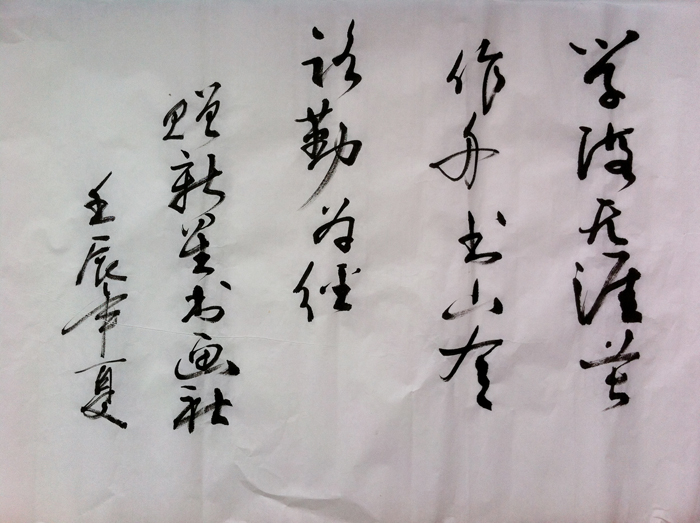 学海无涯苦
作舟书山有
路勤为徑
赠新星书画社
壬辰年夏